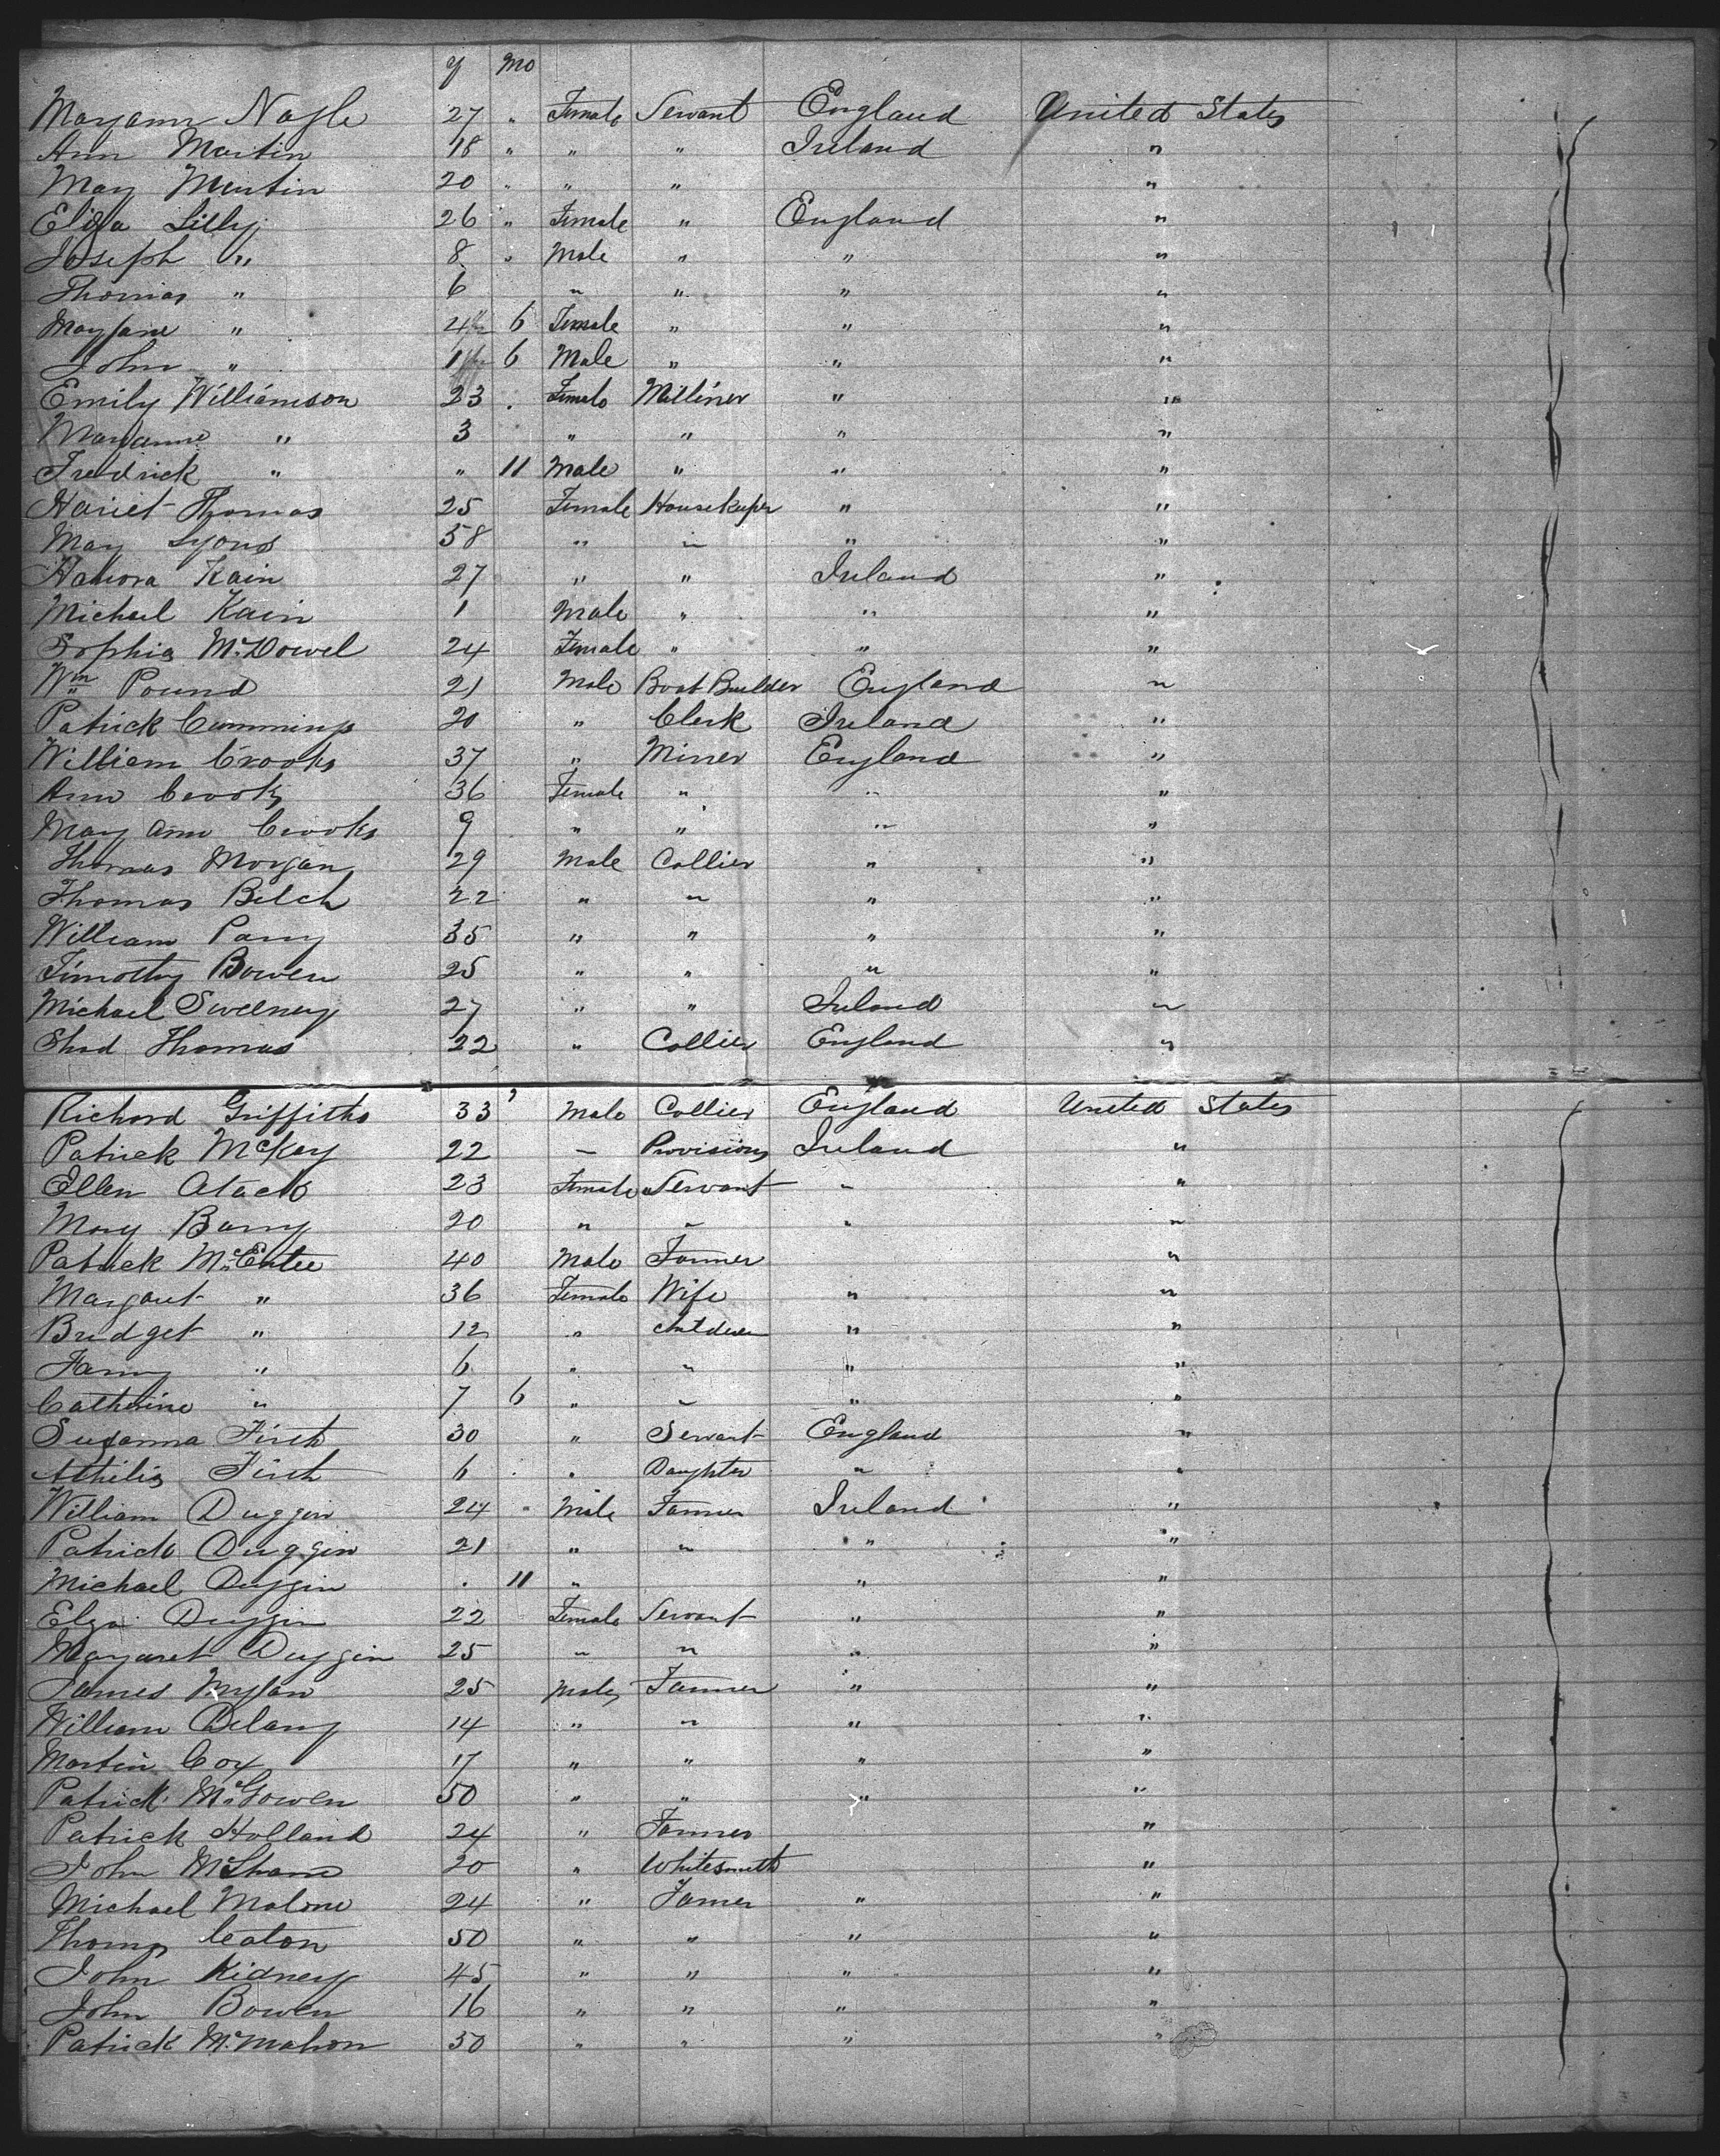 y mo
Maryann Nagle 27 " Female Servant England United States
Ann Martin 18 " " " Ireland "
Mary Martin 20 " " " "
Eliza Lilly 26 " Female " England "
Joseph " 8 " Male " " "
Thomas " 6 " " " "
Mary Jane " 4 6 Female " " "
John " 1 6 Male " " "
Emily Williamson 23 . Female Milliner " "
Maryanne " 3 " " " "
Fredrick " " 11 Male " " "
Hariet Thomas 25 Female Housekeeper " "
Mary Lyons 58 " " " "
Hanora Kain 27 " " Ireland "
Michael Kain 1 Male " " "
Sophia McDowel 24 Female " " "
Wm Pound 21 Male Boat Builder England "
Patrick Cummings 20 " Clerk Ireland "
William Crooks 37 " Miner England "
Ann Crooks 36 Female " " "
Mary Ann Crooks 9 " " " "
Thomas Morgan 29 Male Collier " "
Thomas Belch 22 " " " "
William Parry 35 " " " "
Timothy Bowen 25 " " " "
Michael Sweeney 27 " " Ireland "
Shad Thomas 22 " Collier England "
Richard Griffiths 33 Male Collier England United States
Patrick McKay 22 " Provisions Ireland "
Ellen 23 Female Servant " "
Mary Barry 20 " " " "
Patrick McEntee 40 Male Farmer "
Margaret " 36 Female Wife " "
Bridget " 12 " children " "
Fanny " 6 " " " "
Catherine " 7 6 " " " "
Susanna Firth 30 " Servant England "
Firth 6 . " Daughter " "
William Duggin 24 " Male Farmer Ireland "
Patrick Duggin 21 " " " "
Michael Duggin . 11 " " "
Elza Duggin 22 Female Servant " "
Margaret Duggin 25 " " " "
James Mylan 25 Male Farmer " "
William Delany 14 " " " "
Martin Cox 17 " " " "
Patrick McGowen 50 " " " "
Patrick Holland 24 " Farmer "
John McShane 20 " Whitesmith "
Michael Malone 24 " Farmer " "
Thomas Ceaton 50 " " " "
John Kidney 45 " " " "
John Bowen 16 " " " "
Patrick McMahon 50 " " " "